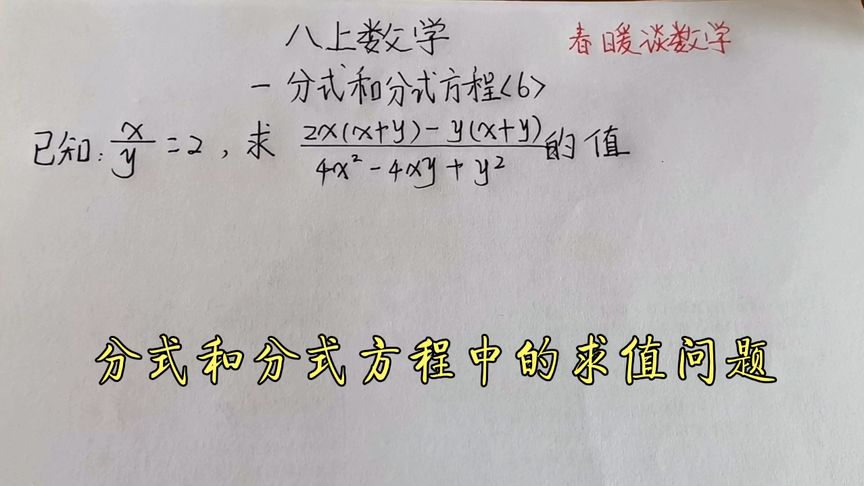 八上数学
春暖谈数学
一分式和分式方程<6>
已知:x/y=2,求 2x(x+y)-y(x+y)/4x²-4xy+y² 的值
分式和分式方程中的求值问题